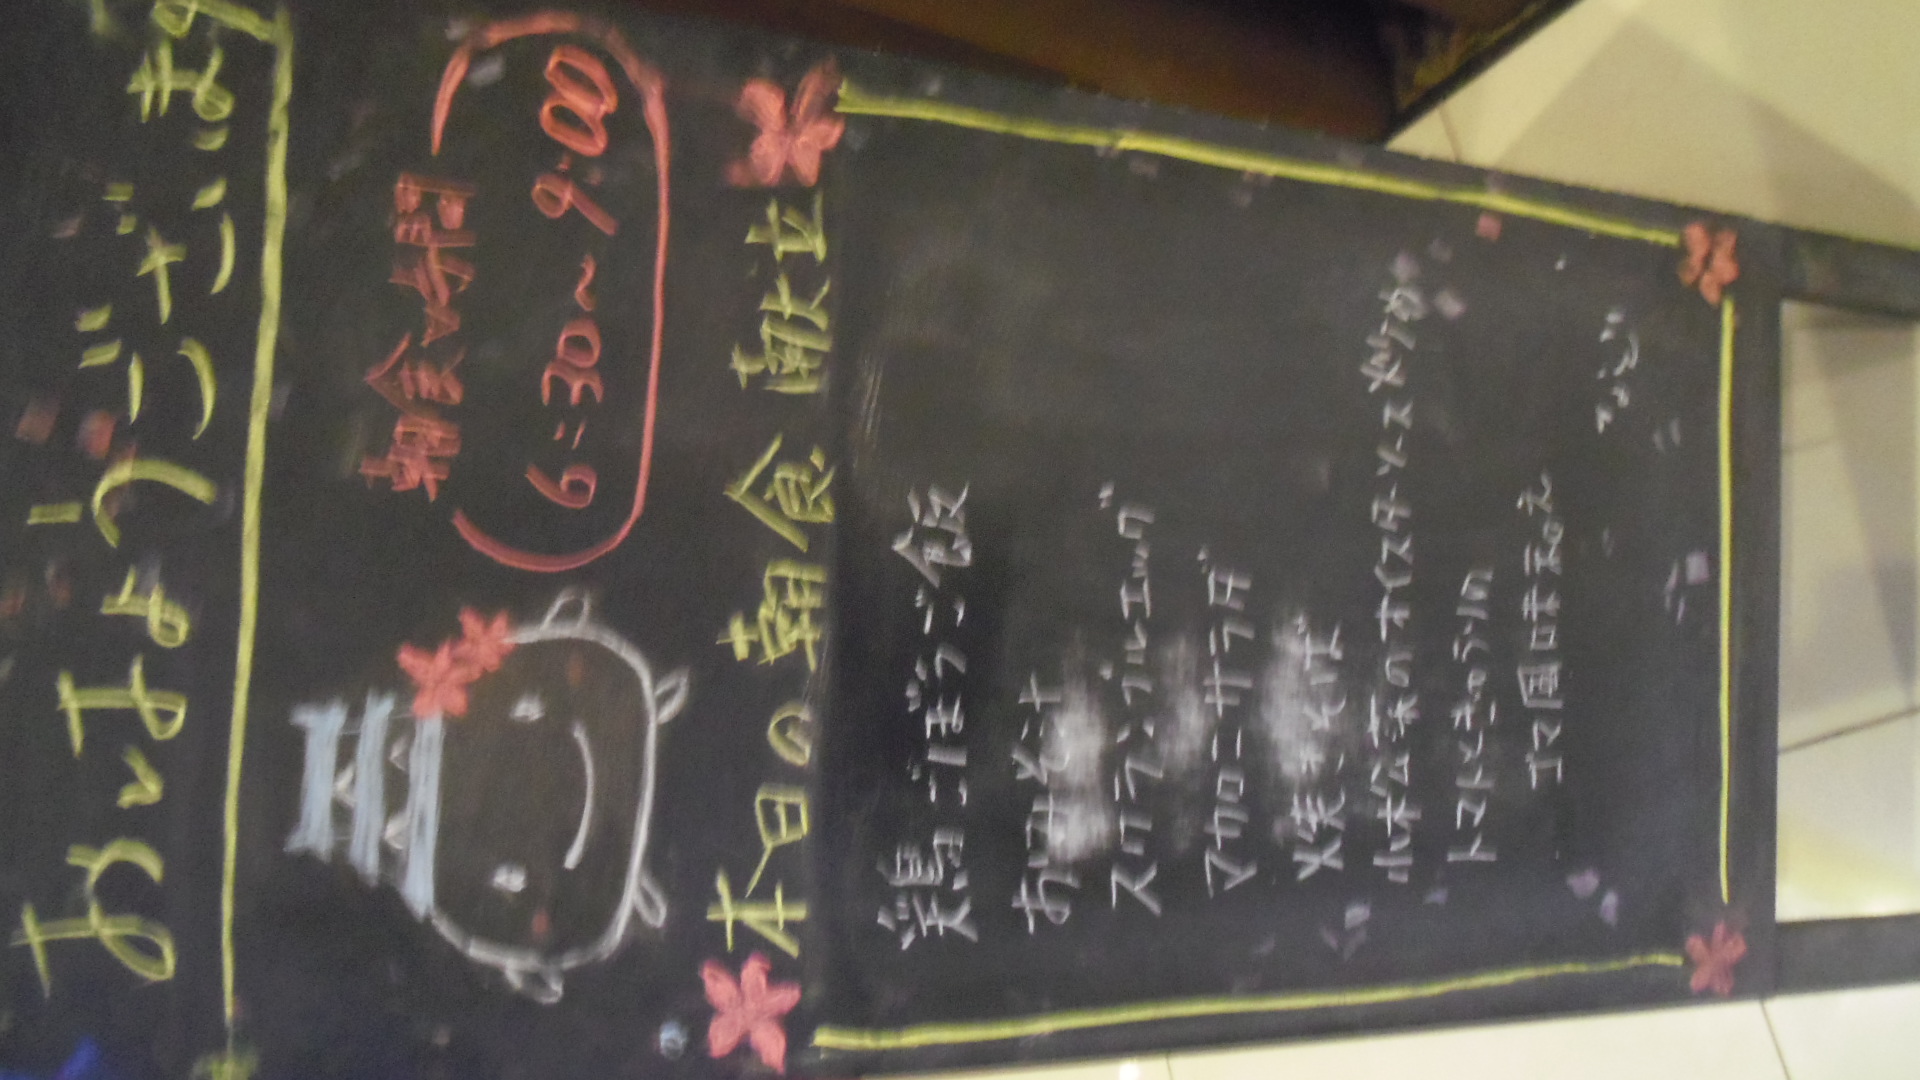 おはようございます
朝食時間
6:30～9:00
本日の朝食献立
鶏ごぼうご飯
おみそ汁
スクランブルエッグ
マカロニサラダ
焼きそば
小松菜のオイスターソース炒め
トマトときゅうりの
ゴマ風味和え
など